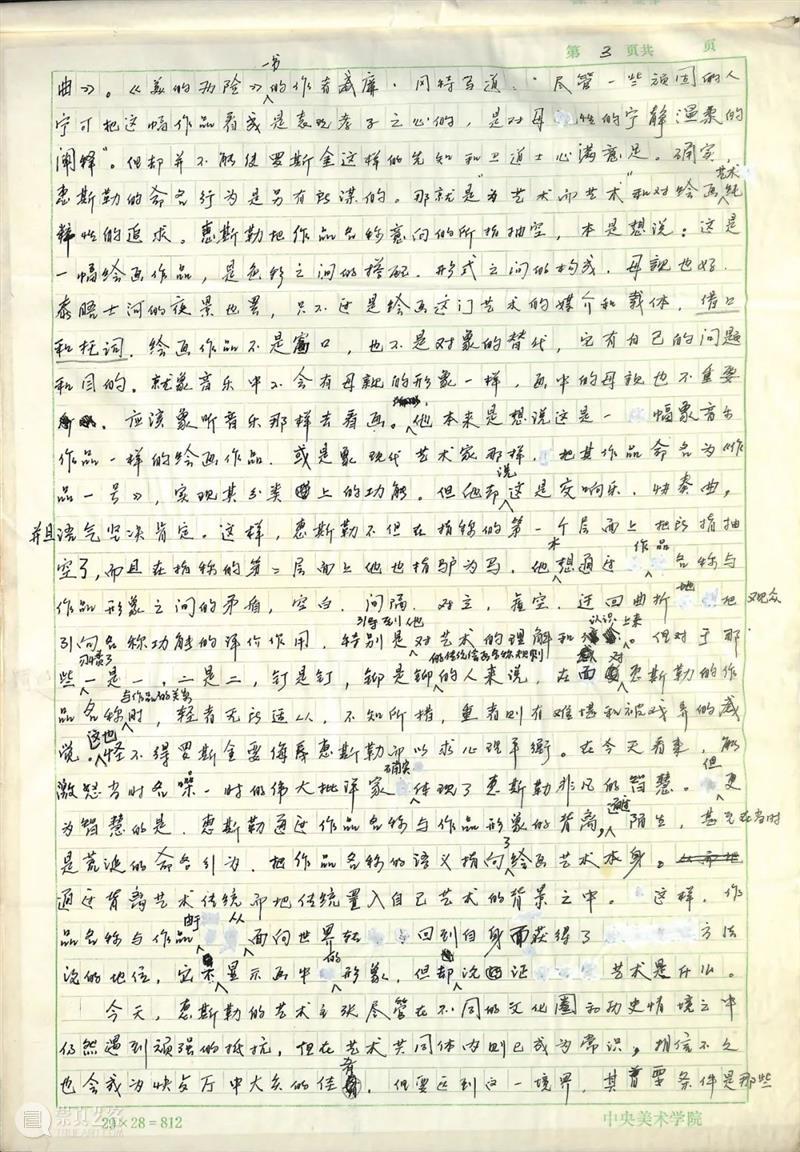 第 3 页共 页
曲》。《美的历险》一书的作者威廉·冈特写道:“尽管一些顽固的人
宁可把这幅作品看成是表现孝子之心的,是对母性的宁静温柔的
阐释”。但却并不能使罗斯金这样的先知和卫道士心满意足。确实,
惠斯勒的命名行为是另有所谋的。那就是“为艺术而艺术”和对绘画艺术纯
粹性的追求。惠斯勒把作品名称意向的所指抽空,本是想说:这是
一幅绘画作品,是色彩之间的搭配,形式之间的构成,母亲也好,
泰晤士河的夜景也罢,只不过是绘画这门艺术的媒介和载体,借口
和托词。绘画作品不是窗口,也不是对象的替代,它有自己的问题
和目的。就象音乐中不会有母亲的形象一样,画中的母亲也不重要
应该象听音乐那样去看画。他本来是想说这是一幅象音乐
作品一样的绘画作品,或是象现代艺术家那样,把其作品命名为《作
品一号》,实现其分类上的功能。但他却说这是交响乐、协奏曲,
并且语气坚决肯定。这样,惠斯勒不但在指称的第一个层面上把所指抽
空了,而且在指称的第二层面上他也指驴为马。他想通过作品名称与
作品形象之间的矛盾,空白,间隔,对立,虚空,迂回曲折地把观众
引向名称功能的评价作用,特别是引导到他对艺术的理解和认识上来。但对于那
些习惯了一是一,二是二,钉是钉,铆是铆的传统信而名称规则的人来说,在面对惠斯勒的作
品名称与作品的关系时,轻者无所适从,不知所措,重者则有难堪和被戏弄的感
觉。这也怪不得罗斯金要侮辱惠斯勒以求心理平衡。在今天看来,能
激怒当时名噪一时的伟大批评家确实体现了惠斯勒非凡的智慧。但更
为智慧的是,惠斯勒通过作品名称与作品形象的背离,陌生,甚至在当时
是荒诞的命名行为,把作品名称的语义指向了绘画艺术本身。
通过背离艺术传统而把传统置入自己艺术的背景之中。这样,作
品名称与作品由于从面向世界转回到自身而获得了方法
论的地位,它不显示画中的形象,但却论证艺术是什么。
今天,惠斯勒的艺术主张尽管在不同的文化圈和历史情境之中
仍然遇到顽强的抵抗,但在艺术共同体内则已成为常识,相信不久
也会成为快餐厅中大众的佳肴,但要达到这一境界,其首要条件是那些
29×28=812
中央美术学院
崇真艺客
TRUEART.COM